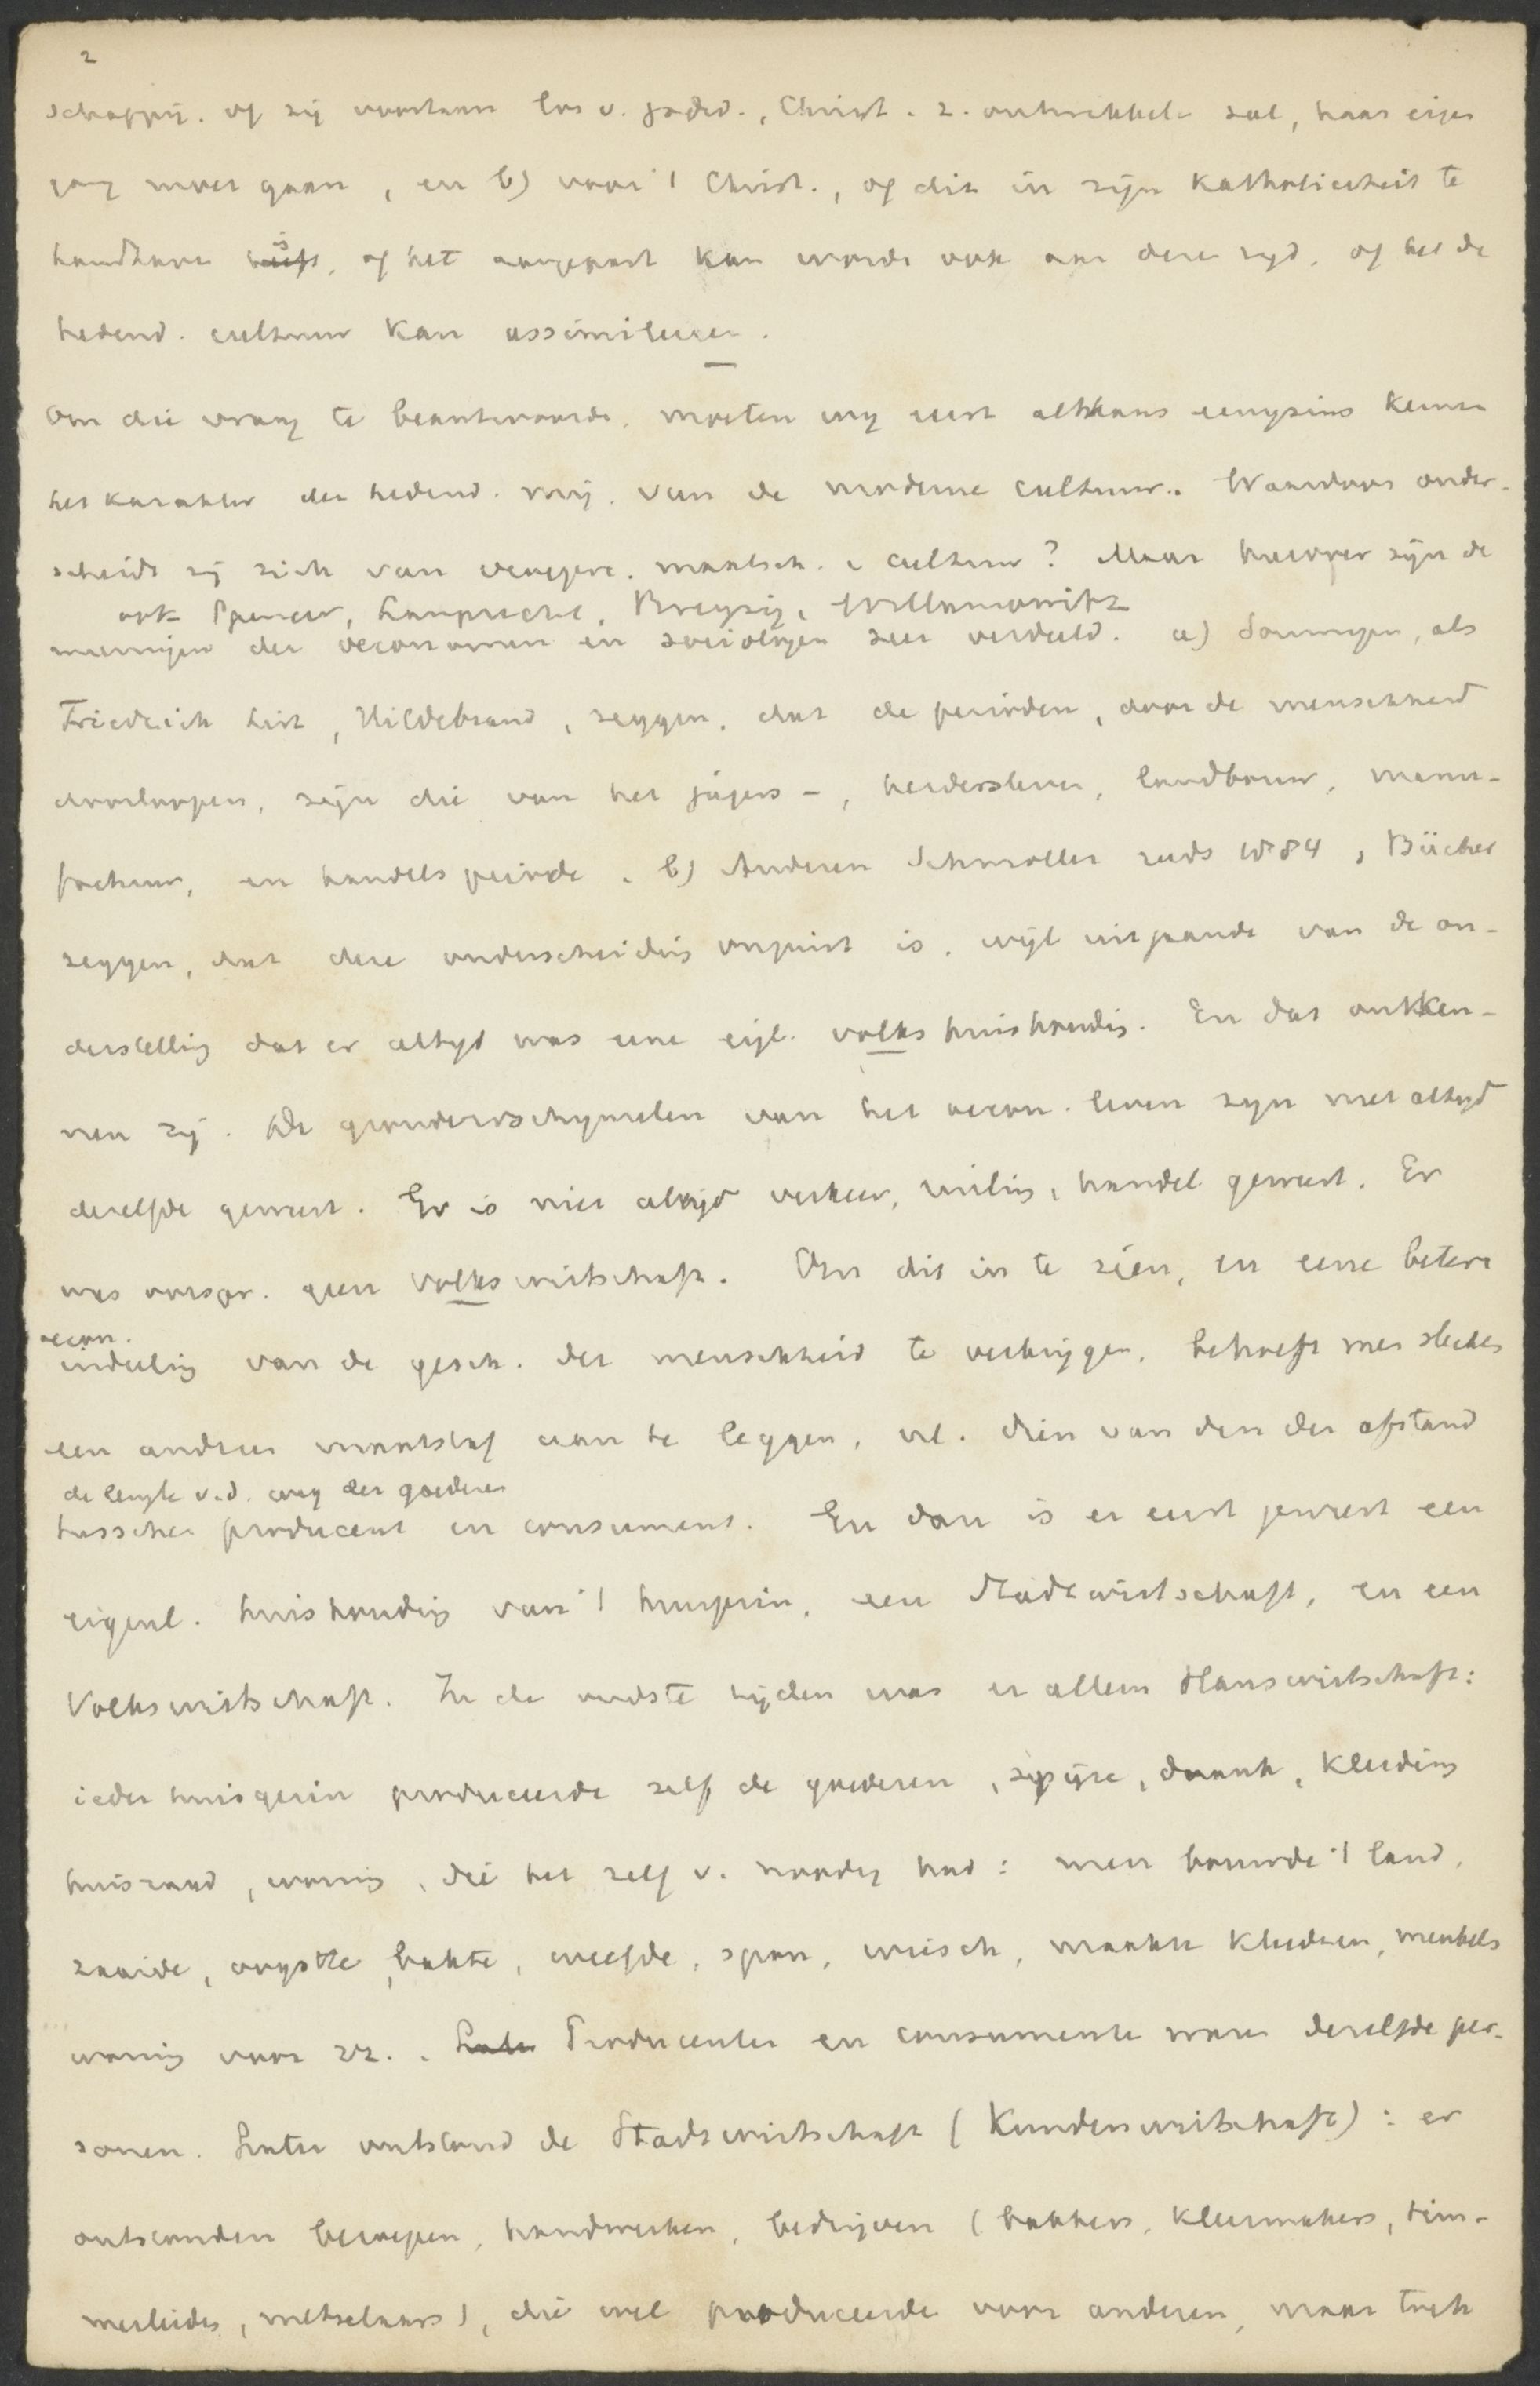 2
schappij. of zij voortaan los v. godsd., Christ. z. ontwikkelen zal, haar eigen
gang moet gaan, en b) voor 't Christ., of dit in zijn Katholiciteit te
handhaven is, of het aangepast kan worde ook aan deze tyd, of het de
hedend. cultuur kan assimileeren.
Om die vraag te beantwoorde, moeten wy eerst althans eenigszins kennen
het karakter der hedend. mij. van de moderne cultuur. Waardoor onder-
scheidt zij zich van vroegere. maatsch. & cultuur? Maar hierover zijn de
ook Spencer, Lamprecht, Breysig, Willamowitz
meeningen der oeconomen en sociologen zeer verdeeld. a) Sommigen, als
Friedrich List, Hildebrand, zeggen, dat de perioden, door de menschheid
doorloopen, zijn die van het jagers-, herdersleven, landbouw, manu-
factuur, en handelsperiode. b) Anderen Schmoller reeds 1884, Bücher
zeggen, dat deze onderscheiding onjuist is, wijl uitgaande van de on-
derstelling dat er altyd was eene eigl. volkshuishoudig. En dat ontken-
nen zij. De grondverschynselen van het oecon. leven zyn niet altyd
dezelfde geweest. Er is niet altijd verkeer, ruiling, handel geweest. Er
was oorspr. geen Volkswirtschaft. Om dit in te zien, en eene betere
oecon.
indeeling van de gesch. der menschheid te verkrijgen, behoeft men slechts
een andren maatstaf aan te leggen, nl. dien van den der afstand
de lengte v.d. weg der goederen
tusschen producent en consument. En dan is er eerst geweest een
eigenl. huishoudig van 't huisgezin, een Stadtwirtschaft, en een
Volkswirtschaft. In de oudste tijden was er alleen Hauswirtschaft:
ieder huisgezin produceerde zelf de goederen, spijze, drank, kleeding
huisraad, woning, die het zelf v. noodig had: men bouwde 't land,
zaaide, oogstte, bakte, weefde, spon, wiesch, maakte kleederen, meubels
woning voor zz.. Later Producenten en consumente waren dezelfde per-
sonen. Later ontstond de Stadtwirtschaft (Kundenwirtschaft): er
ontstonden beroepen, handwerken, bedrijven (bakkers, kleermakers, tim-
merlieden, metselaars), die wel produceerde voor anderen, maar toch